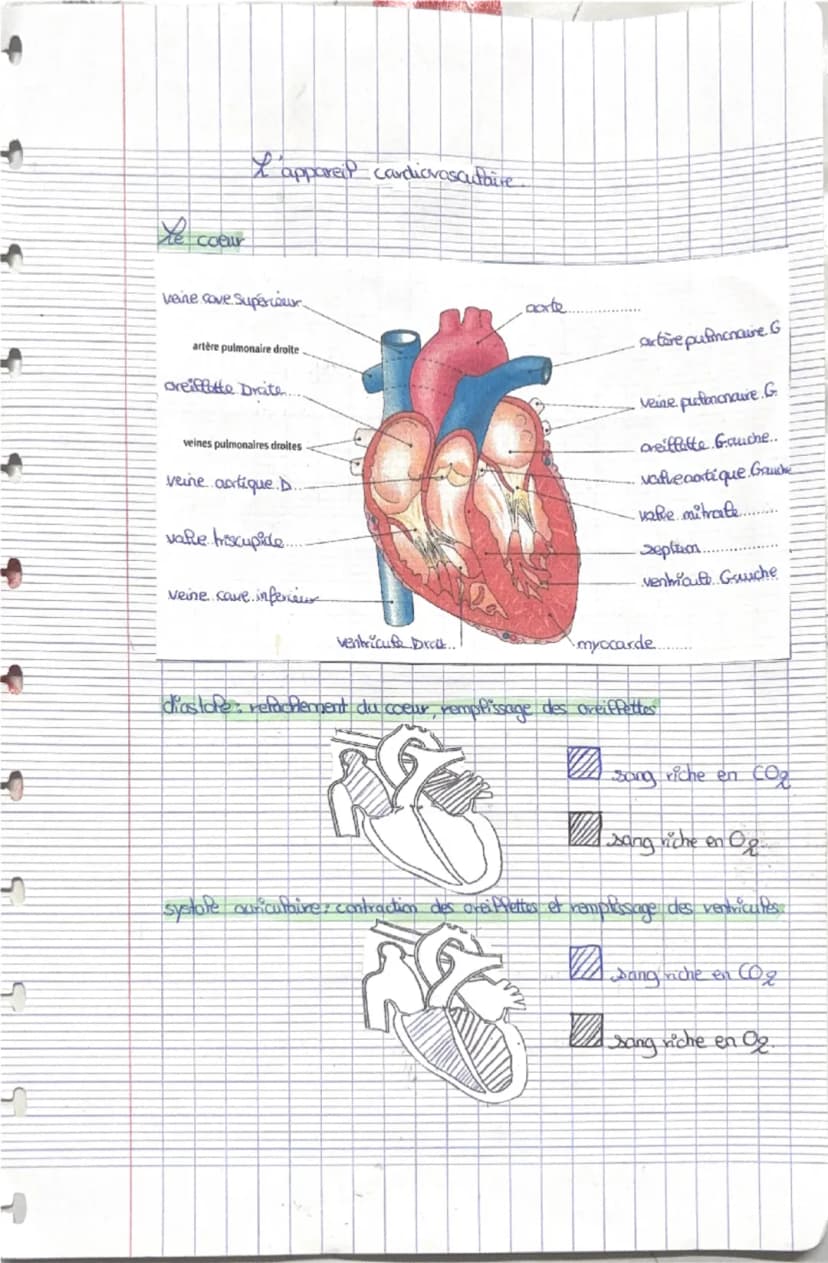 L'appareil cardiovasculaire.
Le coeur
veine cave Supérieur
artère pulmonaire droite
oreillette Droite
veines pulmonaires droites
veine aortique D
valve triscupide
veine cave inferieur
ventricule Droit
aorte
artère pulmonaire G
veine pulmonaire G
oreillette Gauche
valve aortique Gauche
valve mitrale
septum
ventricule Gauche
myocarde
diastole : relâchement du coeur, remplissage des oreillettes
sang riche en CO2
sang riche en O2
systole auriculaire : contraction des oreillettes et remplissage des ventricules
sang riche en CO2
sang riche en O2.